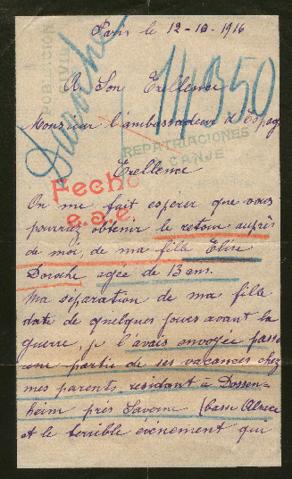 Paris le 12-10-1916
POBLACION
CIVIL
Doroche
14350
A Son Excellence
Monsieur l'ambassadeur d'Espag
REPATRIACIONES
CANJE
Excellence
Fecho
e.a.e
On me fait espérer que vous
pourriez obtenir le retour auprès
de moi, de ma fille Elise
Doroche agée de 13 ans.
Ma séparation de ma fille
date de quelques jours avant la
guerre, je l'avais envoyée passer
une partie de ses vacances chez
mes parents, residant à Dossen-
heim près Saverne (basse Alsace
et le terrible événement qui